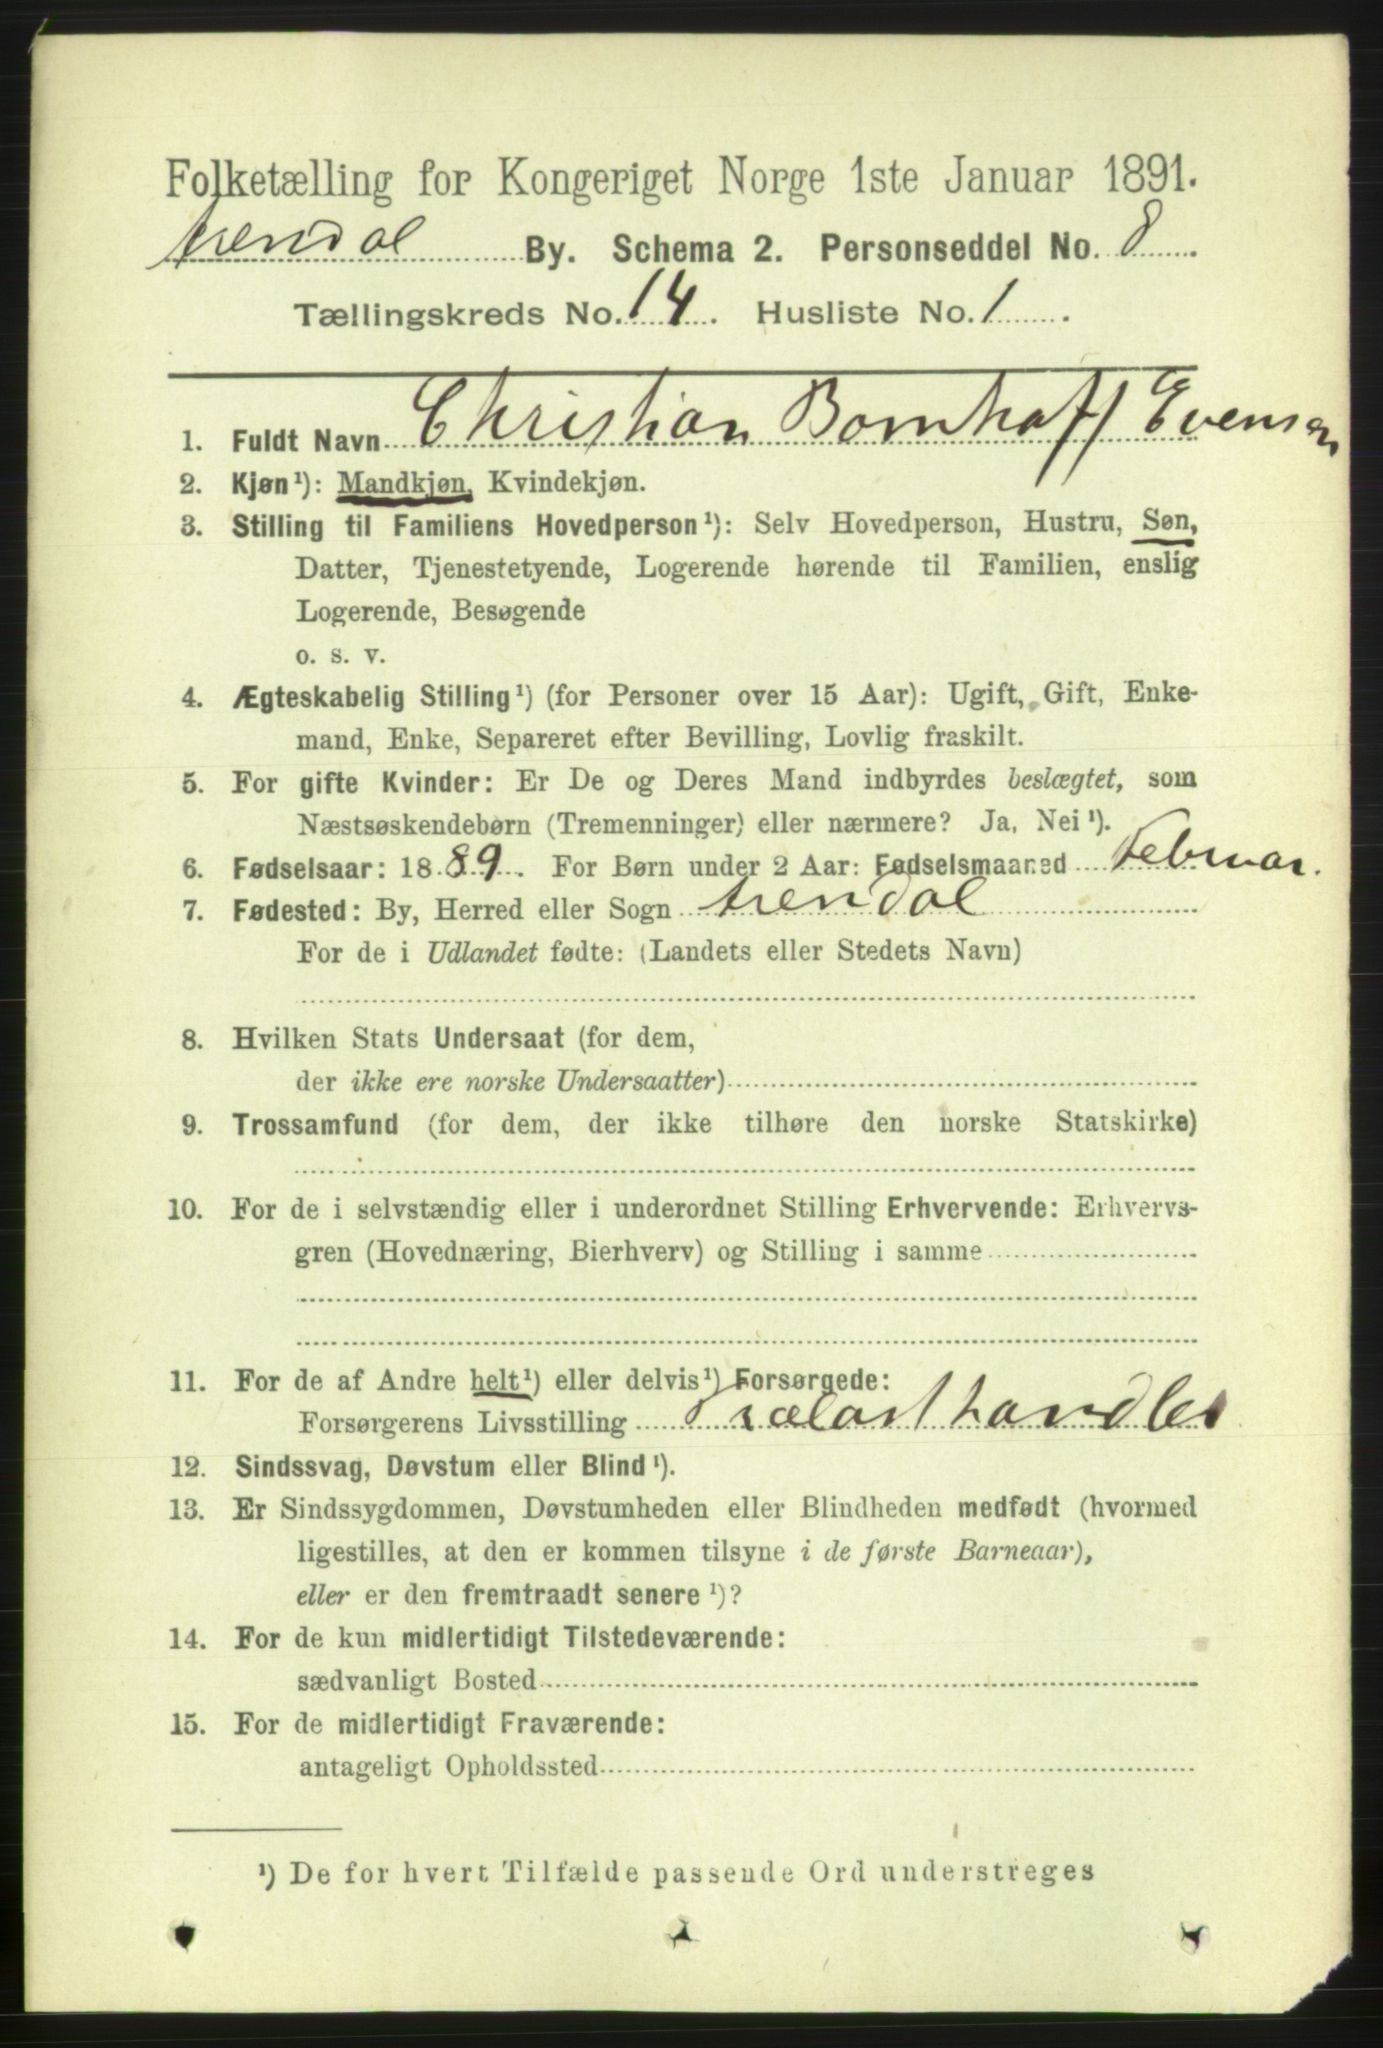 Folketælling for Kongeriget Norge 1ste Januar 1891.
Arendal By. Schema 2. Personseddel No. 8
Tællingskreds No. 14. Husliste No. 1.
1. Fuldt Navn Christian Bomhoff Evensen
2. Kjøn¹): Mandkjøn, Kvindekjøn.
3. Stilling til Familiens Hovedperson¹): Selv Hovedperson, Hustru, Søn,
Datter, Tjenestetyende, Logerende hørende til Familien, enslig
Logerende, Besøgende
o. s. v.
4. Ægteskabelig Stilling¹) (for Personer over 15 Aar): Ugift, Gift, Enke-
mand, Enke, Separeret efter Bevilling, Lovlig fraskilt.
5. For gifte Kvinder: Er De og Deres Mand indbyrdes beslægtet, som
Næstsøskendebørn (Tremenninger) eller nærmere? Ja, Nei¹).
6. Fødselsaar: 1889. For Børn under 2 Aar: Fødselsmaaned Februar.
7. Fødested: By, Herred eller Sogn Arendal
For de i Udlandet fødte: (Landets eller Stedets Navn)
8. Hvilken Stats Undersaat (for dem,
der ikke ere norske Undersaatter)
9. Trossamfund (for dem, der ikke tilhøre den norske Statskirke)
10. For de i selvstændig eller i underordnet Stilling Erhvervende: Erhvervs-
gren (Hovednæring, Bierhverv) og Stilling i samme
11. For de af Andre helt¹) eller delvis¹) Forsørgede:
Forsørgerens Livsstilling Trælasthandler
12. Sindssvag, Døvstum eller Blind¹).
13. Er Sindssygdommen, Døvstumheden eller Blindheden medfødt (hvormed
ligestilles, at den er kommen tilsyne i de første Barneaar),
eller er den fremtraadt senere¹)?
14. For de kun midlertidigt Tilstedeværende:
sædvanligt Bosted
15. For de midlertidigt Fraværende:
antageligt Opholdssted
¹) De for hvert Tilfælde passende Ord understreges